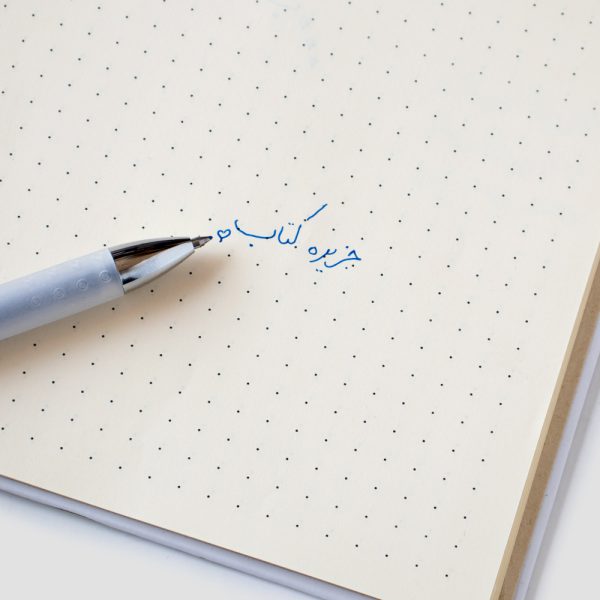 جزیره کتاب ♡